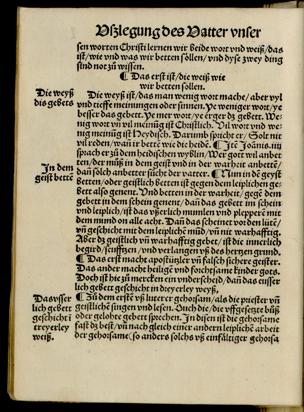 Vßlegung des Vatter vnser
sen worten Christi lernen wir beide wort vnd weiß/das
ist/wie vnd was wir betten söllen/vnd dyse zwey ding
sind not zů wissen.
¶ Das erst ist/die weiß wie
wir betten sollen.
Die weyß
dis gebets
Die weyß ist/das man wenig wort mache/aber vyl
vnd tieffe meinungen oder sinnen. Ye weniger wort/ye
besser das gebett. Ye mer wort/ye erger dz gebett. We-
nig wort vñ vil meinũg ist Christlich. Vil wort vnd we-
nig meinũg ist Heydisch. Darumb spricht er/Solt nit
vil reden/wañ ir bettẽ wie die heidẽ. Itẽ Joãnis.iiij
sprach er zů dem heidischen wyblin/Wer got wil anbet-
ten/der můß in dem geist vnd in der warheit anbettẽ/
dañ sölch anbetter sůcht der vatter.
In dem
geist bettẽ
¶ Nun in dẽ geyst
betten/oder geistlich betten ist gegen dem leiblichen ge-
bett also genent. Vnd betten in der warheit/gegẽ dem
gebett in dem schein genent/dañ das gebett im schein
vnd leiplich/ist das vßerlich mumlen vnd plepperẽ mit
dem mund on alle acht. Dañ das scheinet vor den lütẽ/
vñ geschicht mit dem leiplichẽ můd/vñ nit warhafftig.
Aber dz geistlich vñ warhafftig gebet/ist die innerlich
begird/seufftzen/vnd verlangen vß des hertzen grund.
¶ Das erst macht apostützler vñ falsch sichere geister.
Das ander macht heilige vnd forchtsame kinder gots.
Doch ist hie zů mercken ein vnderscheid/dañ das eusser
lich gebett geschicht in dreyerley weyß.
Das vsser
lich gebett
geschicht ĩ
treyerley
weiß.
¶ Zů dem erstẽ vß luterer gehorsam/als die priester vñ
geistlichen singen vnd lesen. Ouch die/die vffgesetzte bůß
oder gelobte gebett sprechen. In disen ist die gehorsame
fast dz best/vñ nach gleich einer andern leiplichẽ arbeit
der gehorsame/so anders solchs vß einfältiger gehorsa